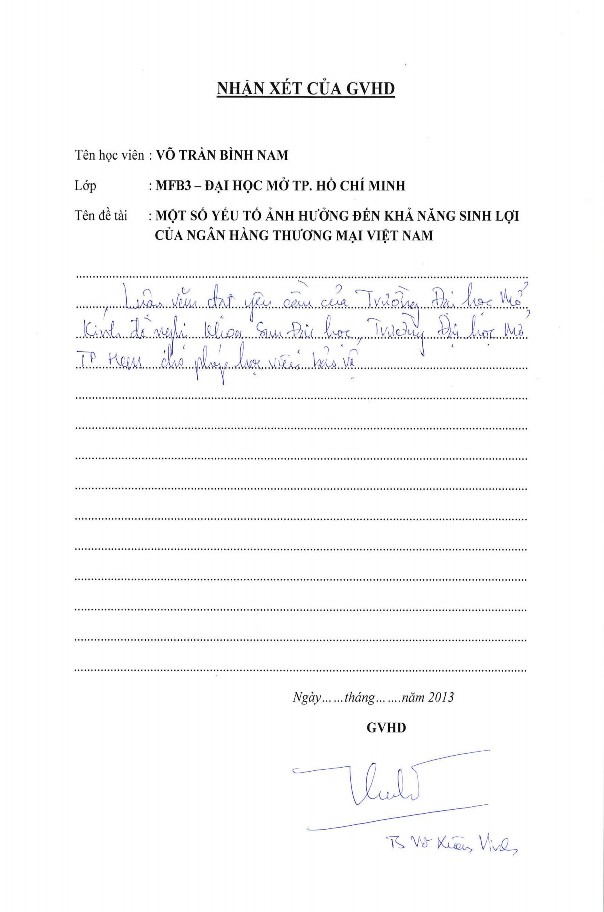 NHẬN XÉT CỦA GVHD
Tên học viên : VÕ TRẦN BÌNH NAM
Lớp : MFB3 – ĐẠI HỌC MỞ TP. HỒ CHÍ MINH
Tên đề tài : MỘT SỐ YẾU TỐ ẢNH HƯỞNG ĐẾN KHẢ NĂNG SINH LỢI
CỦA NGÂN HÀNG THƯƠNG MẠI VIỆT NAM
Luận văn đạt yêu cầu của Trường Đại học Mở.
Kính đề nghị Khoa Sau Đại học, Trường Đại học Mở
TP HCM cho phép học viên bảo vệ
Ngày……tháng…….năm 2013
GVHD
TS Võ Xuân Vinh